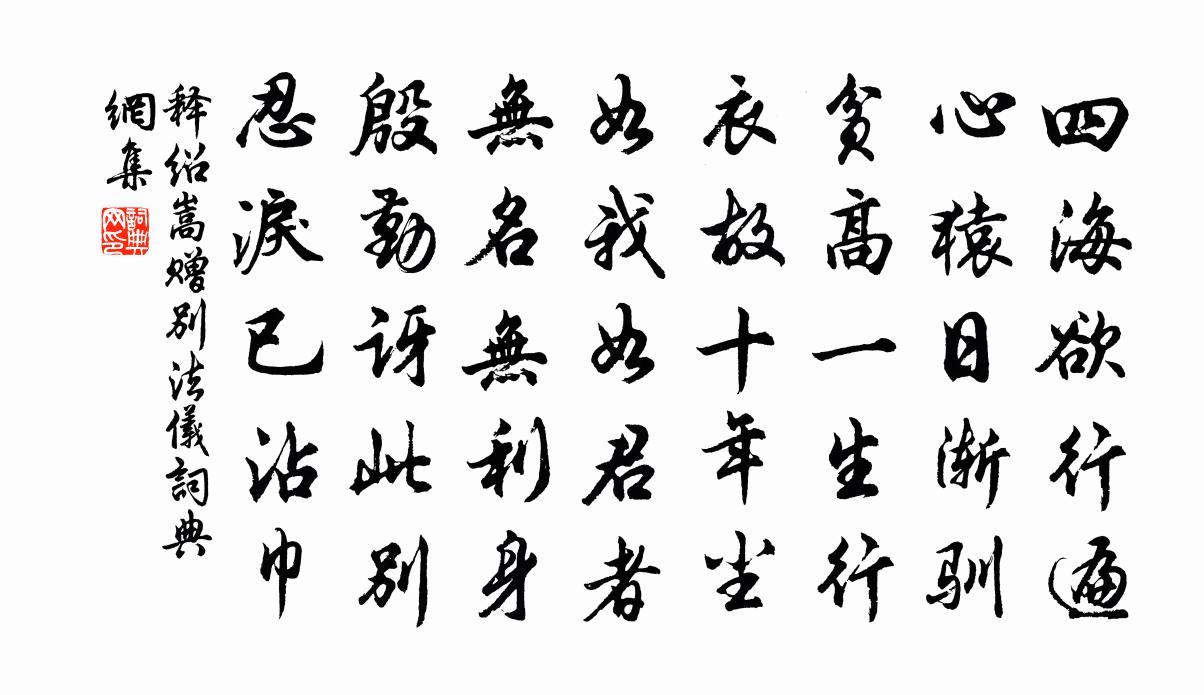 四海欲行遍
心猿日渐驯
貧高一生行
衣故十年尘
如我如君者
無名無利身
殷勤讶此别
忍淚已沾巾
释绍嵩赠别法儀詞典
網集
詞典网印